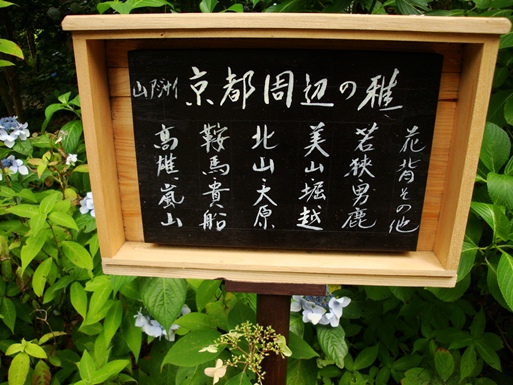 山アジサイ 京都周辺の雅
花背その他
若狭男鹿
美山堀越
北山大原
鞍馬貴船
高雄嵐山